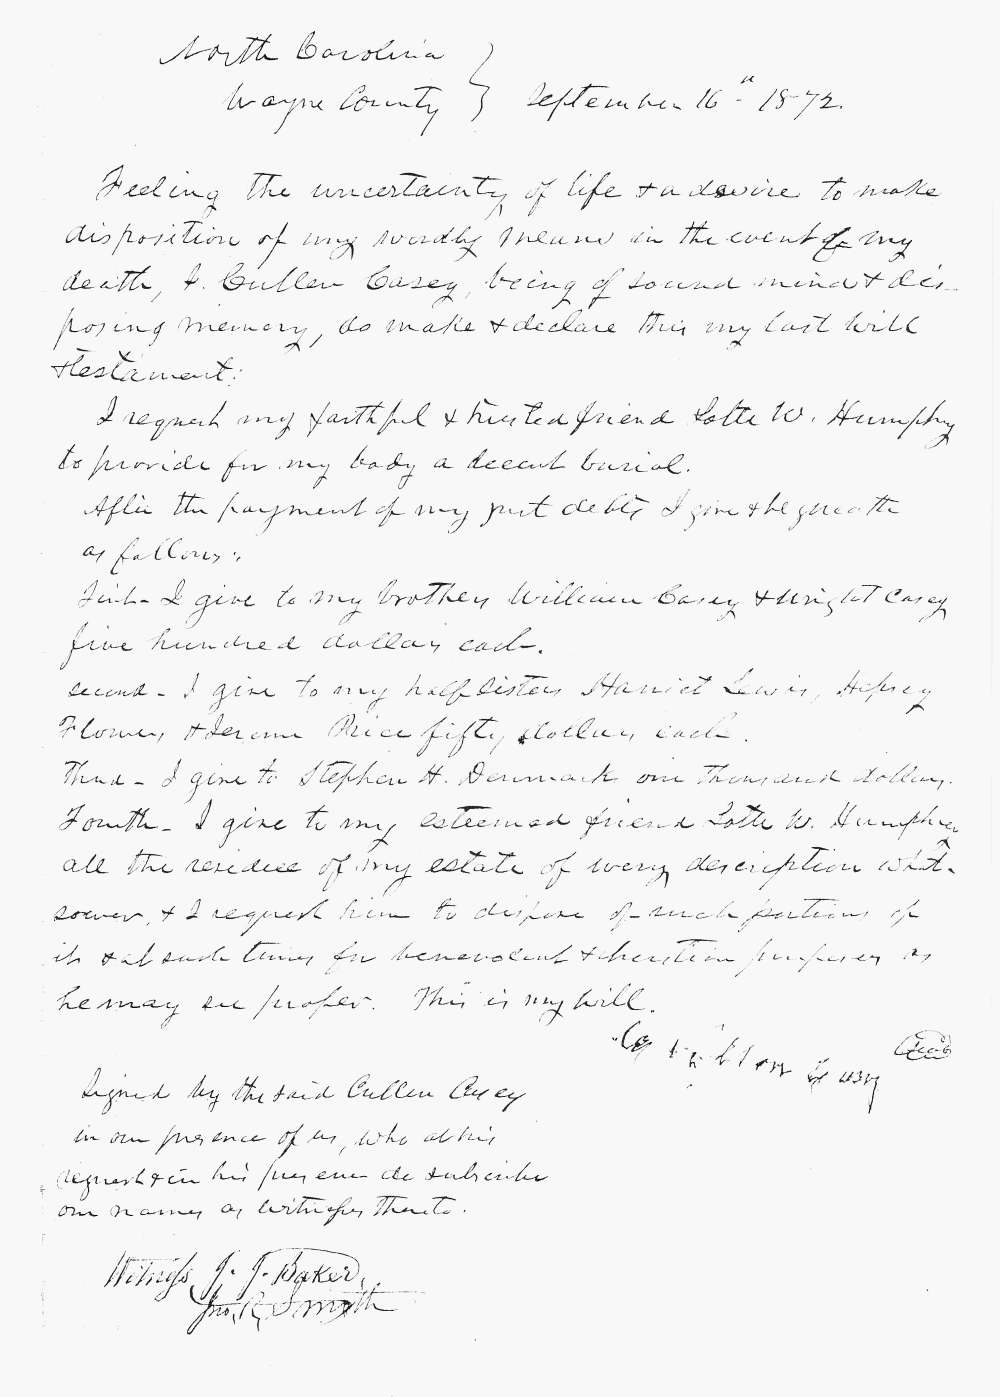 North Carolina
Wayne County } September 16th 1872.
Feeling the uncertainty of life & a desire to make
disposition of my wordly means in the event of my
death, I. Cullen Casey, being of sound mind & dis-
posing memory, do make & declare this my last Will
& testament:
I request my faithful & trusted friend Lotte W. Humphry
to provide for my body a decent burial.
After the payment of my just debts I give & bequeath
as follows:
First - I give to my brothers William Casey & Wright Casey
five hundred dollars each.
second - I give to my half sisters Harriet Lewis, Hepsey
Flowers & Price fifty dollars each.
Third - I give to Stephen H. Denmark one thousand dollars.
Fourth - I give to my esteemed friend Lotte W. Humphrey
all the residue of my estate of every description what-
soever, & I request him to dispose of such portions of
it & at such times for benevolent & christian purposes as
he may see proper. This is my Will.
Casey Seal
Signed by the said Cullen Casey
in our presence of us, who at his
request & in his presence do subscribe
our names as witnesses thereto.
Witness J. J. Baker,
Jno. R. Smyth